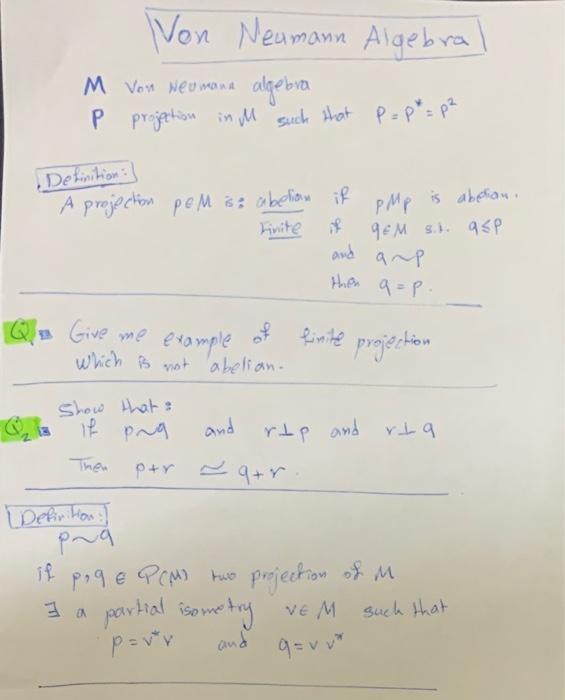 Von Neumann Algebra
M Von Neumann algebra
P projection in M such that P = P* = P²
Definition:
A projection p∈M is: abelian if pMp is abelian.
Finite if q∈M s.t. q≤p
and q~p
then q = p.
Q1 Give me example of finite projection
which is not abelian.
Show that:
Q2 If p~q and r⊥p and r⊥q
Then p+r ≃ q+r.
Definition:
p~q
if p,q ∈ P(M) two projection of M
∃ a partial isometry v∈M such that
p = v*v and q = v v*